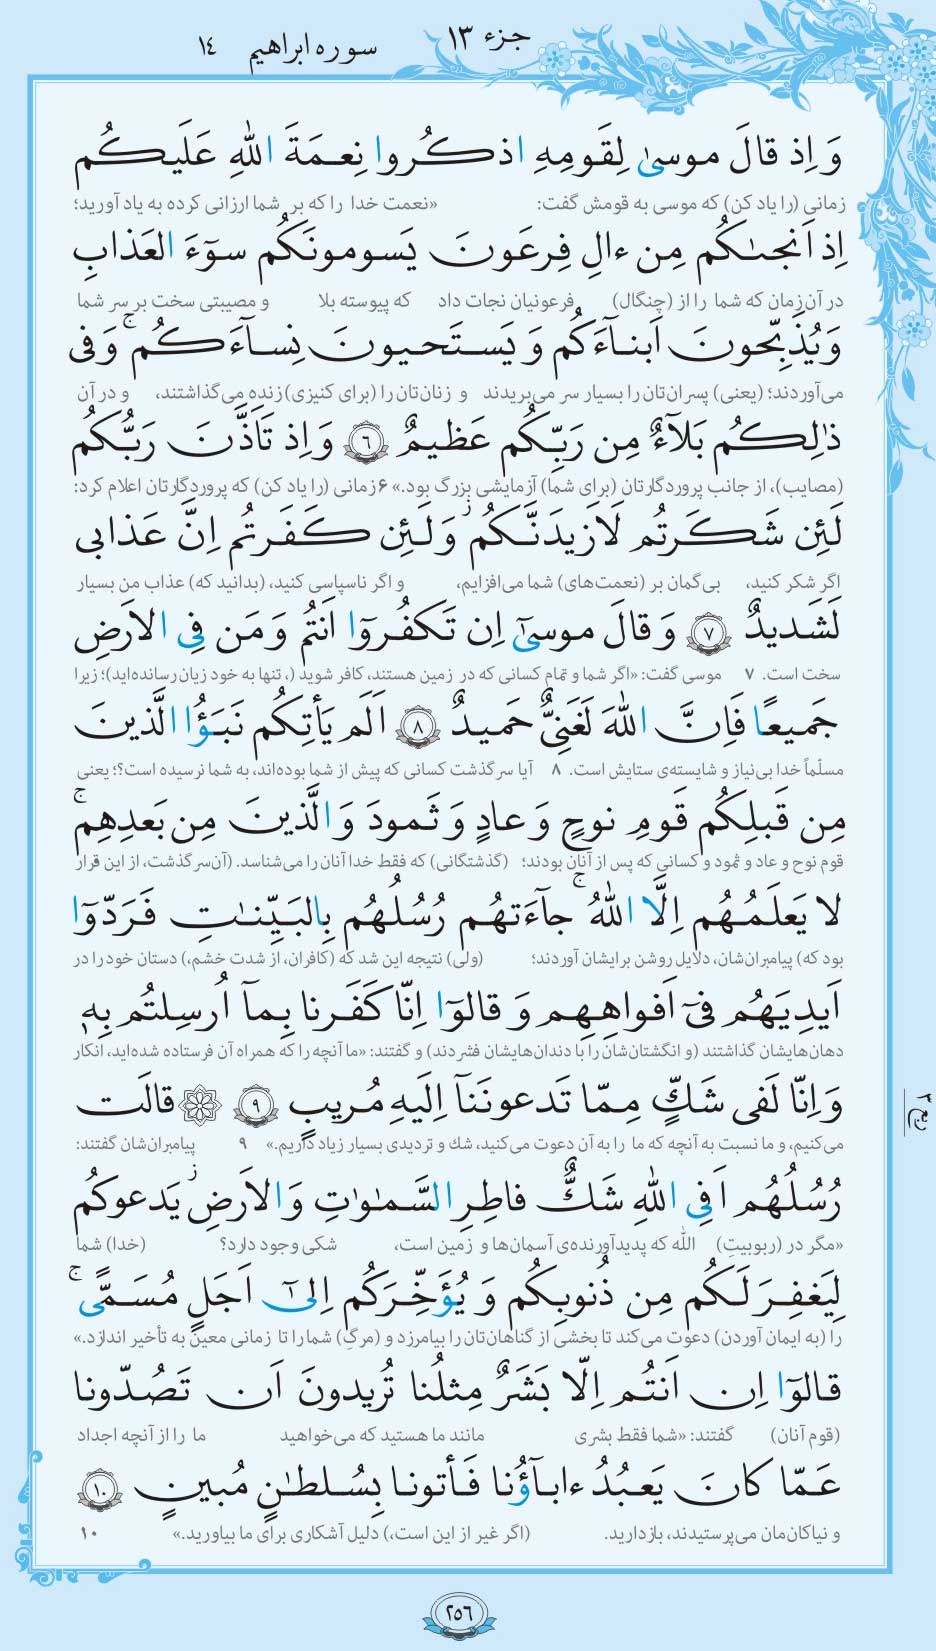 جزء ۱۳
سوره ابراهیم ۱٤
وَ اِذ قالَ موسىٰ لِقَومِهِ اذكُروا نِعمَةَ اللّٰهِ عَلَيكُم
زمانی (را یاد کن) که موسی به قومش گفت: «نعمت خدا را که بر شما ارزانی کرده به یاد آورید؛
اِذ اَنجىٰكُم مِن ءالِ فِرعَونَ يَسومونَكُم سوٓءَ العَذابِ
در آن زمان که شما را از (چنگال) فرعونیان نجات داد که پیوسته بلا و مصیبتی سخت بر سر شما
وَيُذَبِّحونَ اَبناءَكُم وَ يَستَحيونَ نِسآءَكُم ۚ وَفى
می‌آوردند؛ (یعنی) پسران‌تان را بسیار سر می‌بریدند و زنان‌تان را (برای کنیزی) زنده می‌گذاشتند، و در آن
ذٰلِكُم بَلآءٌ مِن رَبِّكُم عَظيمٌ ٦ وَ اِذ تَاَذَّنَ رَبُّكُم
(مصایب)، از جانب پروردگارتان (برای شما) آزمایشی بزرگ بود.» ۶ زمانی (را یاد کن) که پروردگارتان اعلام کرد:
لَئِن شَكَرتُم لَاَزيدَنَّكُم ۖز وَلَئِن كَفَرتُم اِنَّ عَذابى
اگر شکر کنید، بی‌گمان بر (نعمت‌های) شما می‌افزایم، و اگر ناسپاسی کنید، (بدانید که) عذاب من بسیار
لَشَديدٌ ٧ وَ قالَ موسىٰٓ اِن تَكفُروٓا اَنتُم وَ مَن فِى الاَرضِ
سخت است. ۷ موسی گفت: «اگر شما و تمام کسانی که در زمین هستند، کافر شوید (، تنها به خود زیان رسانده‌اید)؛ زیرا
جَميعًا فَاِنَّ اللّٰهَ لَغَنِىٌّ حَميدٌ ٨ اَلَم يَأتِكُم نَبَؤُا الَّذينَ
مسلّماً خدا بی‌نیاز و شایسته‌ی ستایش است. ۸ آیا سرگذشت کسانی که پیش از شما بوده‌اند، به شما نرسیده است؟؛ یعنی
مِن قَبلِكُم قَومِ نوحٍ وَ عادٍ وَ ثَمودَ وَ الَّذينَ مِن بَعدِهِم ۚ
قوم نوح و عاد و ثمود و کسانی که پس از آنان بودند؛ (گذشتگانی) که فقط خدا آنان را می‌شناسد. (آن سرگذشت، از این قرار
لا يَعلَمُهُم اِلَّا اللّٰهُ ۚ جآءَتهُم رُسُلُهُم بِالبَيِّنٰتِ فَرَدّوٓا
بود که) پیامبران‌شان، دلایل روشن برایشان آوردند؛ (ولی) نتیجه این شد که (کافران، از شدت خشم،) دستان خود را در
اَيدِيَهُم فىٓ اَفواهِهِم وَ قالوٓا اِنّا كَفَرنا بِمآ اُرسِلتُم بِهٖ
دهان‌هایشان گذاشتند (و انگشتان‌شان را با دندان‌هایشان فشردند) و گفتند: «ما آنچه را که همراه آن فرستاده شده‌اید، انکار
وَ اِنّا لَفى شَكٍّ مِمّا تَدعونَنآ اِلَيهِ مُريبٍ ٩ ۞ قالَت
می‌کنیم، و ما نسبت به آنچه که ما را به آن دعوت می‌کنید، شك و تردیدی بسیار زیاد داریم.» ۹ پیامبران‌شان گفتند:
رُسُلُهُم اَفِى اللّٰهِ شَكٌّ فاطِرِ السَّمٰوٰتِ وَ الاَرضِ ۖز يَدعوكُم
«مگر در (ربوبیتِ) اللّٰه که پدیدآورنده‌ی آسمان‌ها و زمین است، شکی وجود دارد؟ (خدا) شما
لِيَغفِرَ لَكُم مِن ذُنوبِكُم وَ يُؤَخِّرَكُم اِلىٰٓ اَجَلٍ مُسَمًّى ۚ
را (به ایمان آوردن) دعوت می‌کند تا بخشی از گناهان‌تان را بیامرزد و (مرگِ) شما را تا زمانی معین به تأخیر اندازد.»
قالوٓا اِن اَنتُم اِلّا بَشَرٌ مِثلُنا تُريدونَ اَن تَصُدّونا
(قوم آنان) گفتند: «شما فقط بشری مانند ما هستید که می‌خواهید ما را از آنچه اجداد
عَمّا كانَ يَعبُدُ ءابآؤُنا فَأتونا بِسُلطٰنٍ مُبينٍ ١٠
و نیاکان‌مان می‌پرستیدند، بازدارید. (اگر غیر از این است،) دلیل آشکاری برای ما بیاورید.» ۱۰
٢٥٦